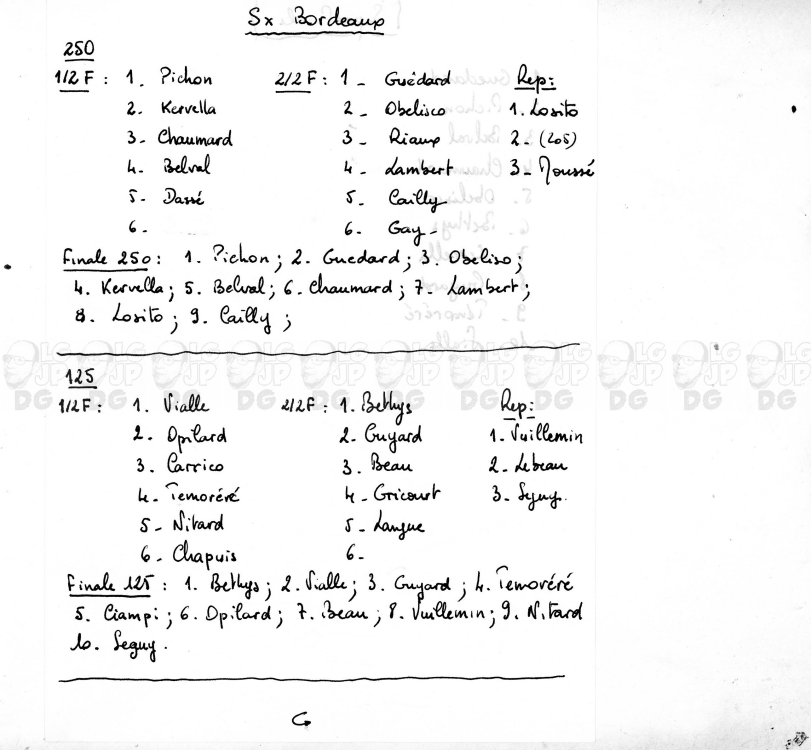 Sx Bordeaux
250
1/2 F : 1. Pichon 2/2 F : 1 - Guédard Rep :
2. Kervella 2 - Obelisco 1. Losito
3 - Chaumard 3 - Riaux 2 - (205)
4. Belval 4 - Lambert 3 - Moussé
5 - Dassé 5 - Cailly
6 - 6 - Gay -
Finale 250 : 1. Pichon ; 2. Guedard ; 3. Obeliso ;
4. Kervella ; 5. Belval ; 6. Chaumard ; 7. Lambert ;
8. Losito ; 9. Cailly ;
125
1/2 F : 1. Vialle 2/2 F : 1. Bethys Rep :
2. Dpilard 2. Guyard 1. Vuillemin
3. Carrico 3. Beau 2. Lebeau
4. Temoréré 4 - Gricourt 3. Seguy.
5 - Nitard 5 - Langue
6 - Chapuis 6 -
Finale 125 : 1. Bethys ; 2. Vialle ; 3. Guyard ; 4. Temoréré
5. Ciampi ; 6. Dpilard ; 7. Beau ; 8. Vuillemin ; 9. Nitard
10. Seguy.
LG JP DG LG JP DG LG JP DG LG JP DG LG JP DG LG JP DG LG JP DG LG JP DG LG JP DG LG JP DG LG JP DG